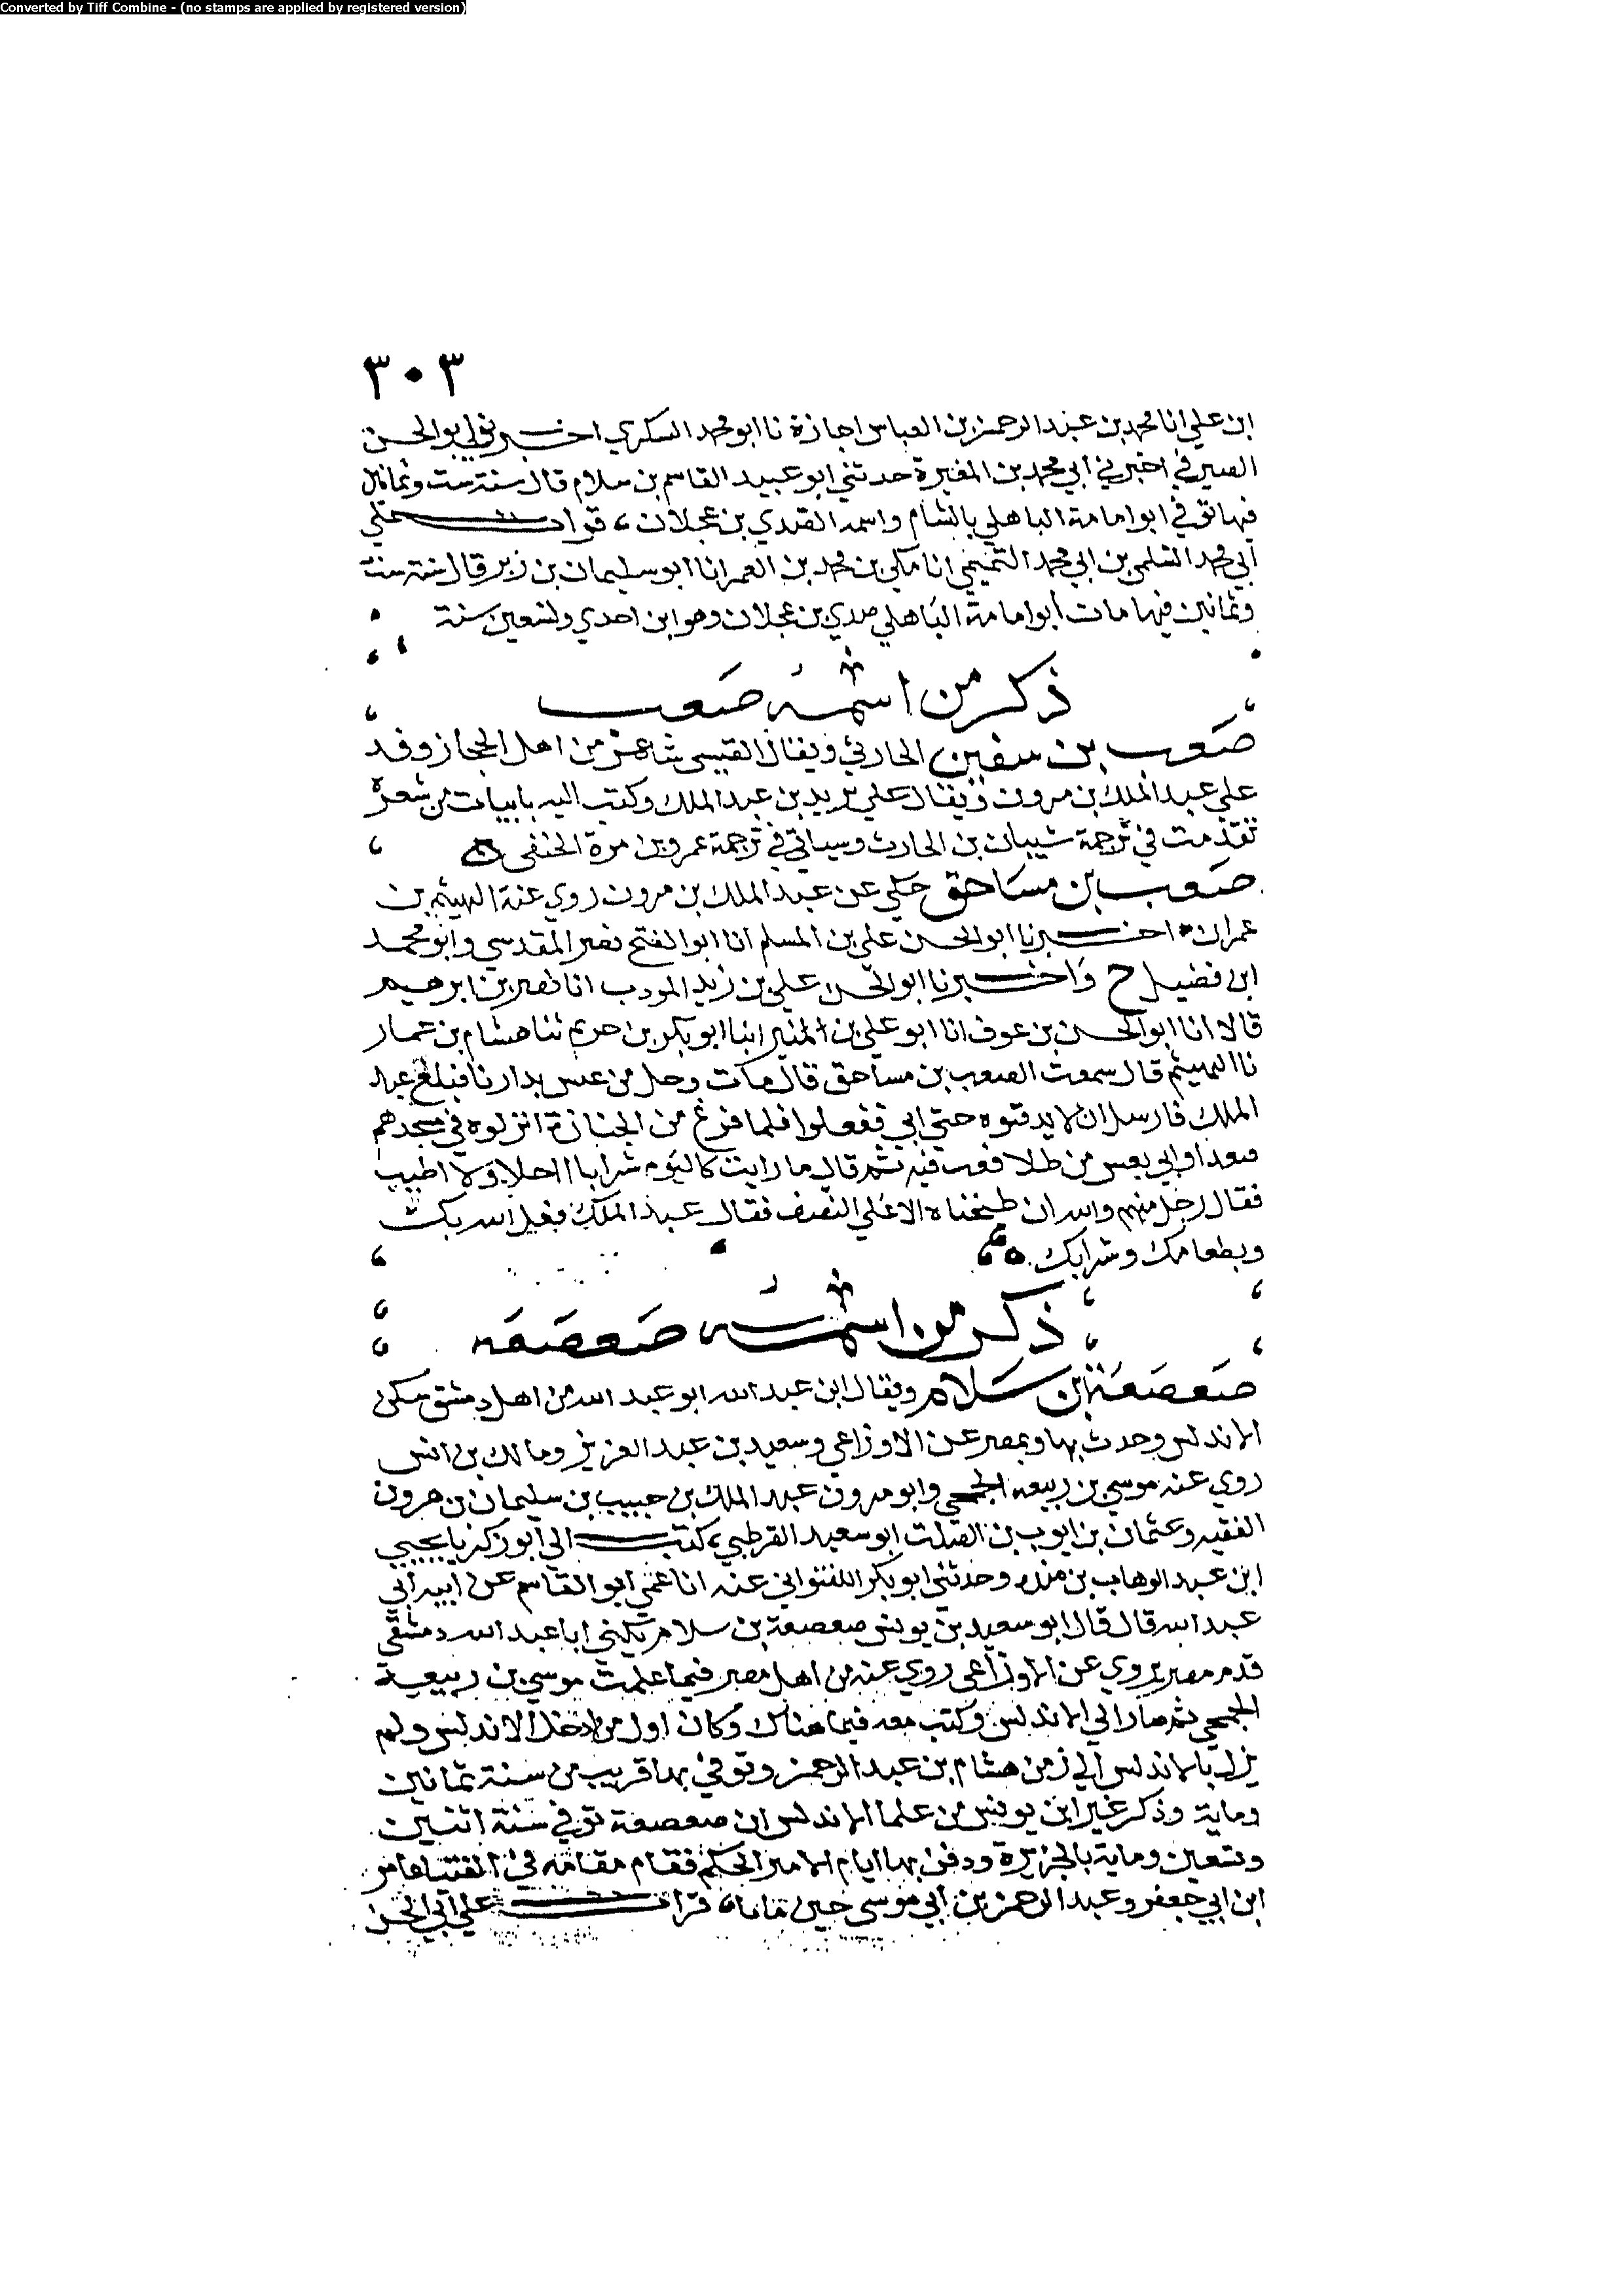 Converted by Tiff Combine - (no stamps are applied by registered version)
٣٠٣
ابن علي انا محمد بن عبد الرحمن بن العباس اجازة نا ابو محمد السكري اخبرني ابو الحسن
الصيرفي اخبرني ابي محمد بن المغيرة حدثني ابو عبيد القاسم بن سلام قال سنة ست وثمانين
فيها توفي ابو امامة الباهلي بالشام واسمه الصدي بن عجلان ، قرات علي
ابي محمد السلمي بن ابي محمد التميمي انا مكي بن محمد بن الغمر انا ابو سليمان بن زبر قال سنة ست
وثمانين فيها مات ابو امامة الباهلي صدي بن عجلان وهو ابن احدي وتسعين سنة
ذكر من اسمه صعب
صعب بن سفين الحارثي ويقال القيسي شاعر من اهل الحجاز وفد
علي عبد الملك بن مرون ويقال علي يزيد بن عبد الملك وكتب اليه بابيات من شعره
تقدمت في ترجمة شيبان بن الحارث وسياتي في ترجمة عمرو بن مرة الحنفي
صعب بن مساحق حكي عن عبد الملك بن مرون روي عنه الهيثم بن
عمران اخبرنا ابو الحسن علي بن المسلم انا ابو الفتح نصر المقدسي وابو محمد
ابن فضيل ح واخبرنا ابو الحسن علي بن زيد المودب انا نصر بن ابرهيم
قالا انا ابو الحسن بن عوف انا ابو علي بن المنير انبا ابو بكر بن خريم ثنا هشام بن عمار
نا الهيثم قال سمعت الصعب بن مساحق قال مات رجل من عبس بدارنا فبلغ عبد
الملك فارسل ان لا يدفنوه حتي اتي ففعلوا فلما فرغ من الجنازة انزلوه في مسجدهم
فعدا واتي بعس من طلا فعب فيه ثم قال ما رايت كاليوم شرابا احلا ولا اطيب
فقال رجل منهم والله ان طبخناه الا علي النصف فقال عبد الملك فعل الله بك
وبطعامك وشرابك
ذكر من اسمه صعصعه
صعصعة بن سلام ويقال ابن عبد الله ابو عبد الله من اهل دمشق سكن
الاندلس وحدث بها وبمصر عن الاوزاعي وسعيد بن عبد العزيز ومالك بن انس
روي عنه موسي بن ربيعه الجمحي وابو مرون عبد الملك بن حبيب بن سليمان بن هرون
الفقيه وعثمان بن ايوب بن الصلت ابو سعيد القرطبي ، كتب الي ابو زكريا يحيي
ابن عبد الوهاب بن منده وحدثني ابو بكر اللفتواني عنه انا عمي ابو القاسم عن ابيه ابي
عبد الله قال قال ابو سعيد بن يونس صعصعة بن سلام يكني ابا عبد الله دمشقي
قدم مصر يروي عن الاوزاعي روي عنه من اهل مصر فيما علمت موسي بن ربيعة
الجمحي ثم صار الي الاندلس وكتب معه فيما هناك وكان اول من ادخل الاندلس ولم
يزل بالاندلس الي زمن هشام بن عبد الرحمن وتوفي بها قريب من سنة ثمانين
وماية وذكر غير ابن يونس من علما الاندلس ان صعصعة توفي سنة اثنين
وتسعين وماية بالجزيرة ودفن بها ايام الامير الحكم فقام مقامه في الفتيا عامر
ابن ابي جعفر وعبد الرحمن بن ابي موسي حين قاما ، قرات علي ابي الحسن